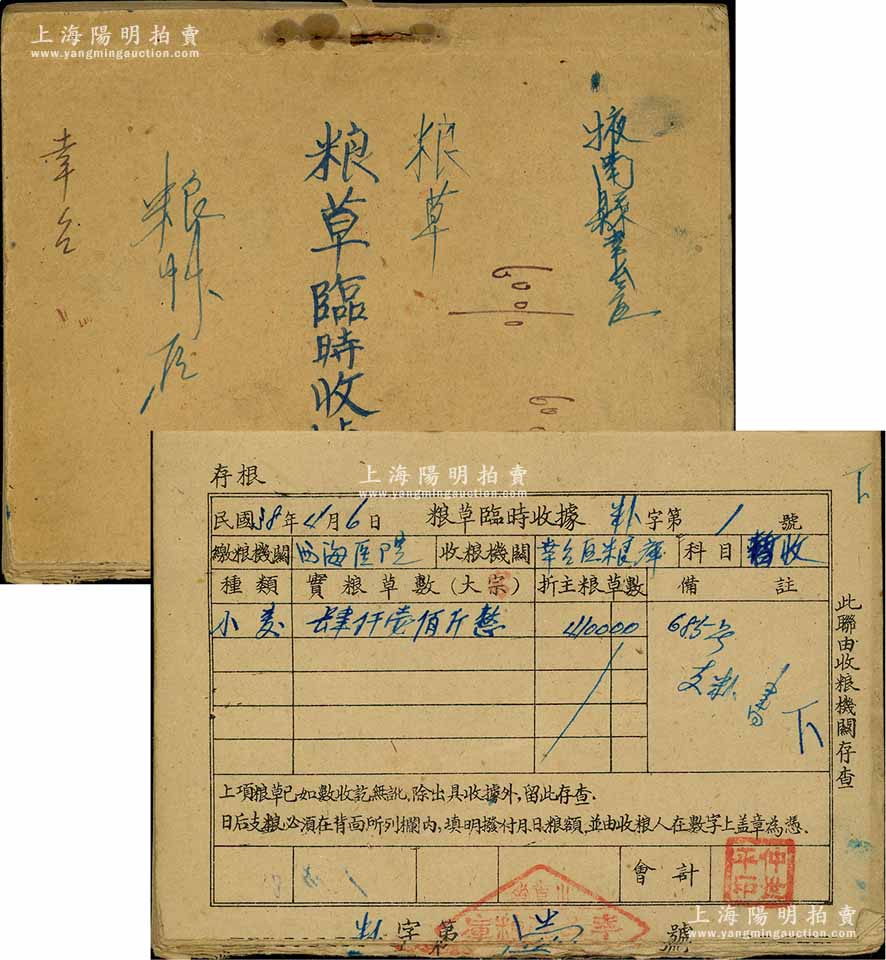 上海陽明拍賣
www.yangmingauction.com
掖南縣幸台区
粮草
粮草臨時收
粮草
幸台
6000
存根
上海陽明拍賣
www.yangmingauction.com
民國38年4月6日 粮草臨時收據 字第1號
繳粮機関 西海医院 收粮機関 幸台区粮庫 科目 暫收
種類 實粮草數(大宗) 折主粮草數 備註
小麦 肆仟壹佰斤整 410000 685号
支粮
下
下
此聯由收粮機関存查
上項粮草已如數收訖無訛,除出具收據外,留此存查.
日后支粮必須在背面所列欄内,填明撥付月日粮額,並由收粮人在數字上盖章為憑.
會計
字第 號
上海陽明拍賣
www.yangmingauction.com